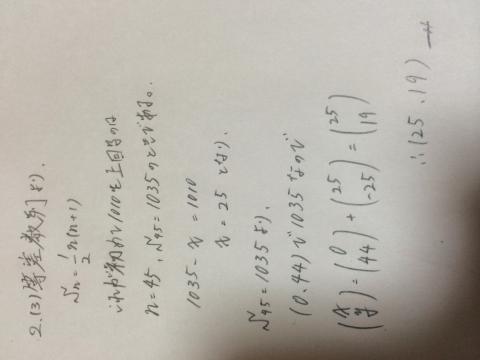 2.(3)等差数列より.
Sn=1/2n(n+1)
これが初めて1010を上回るのは
n=45, S45=1035のときである。
1035-x=1010
x=25となり.
S45=1035より.
(0.44)で1035なので
(x y)=(0 44)+(25 -25)=(25 19)
∴(25、19)